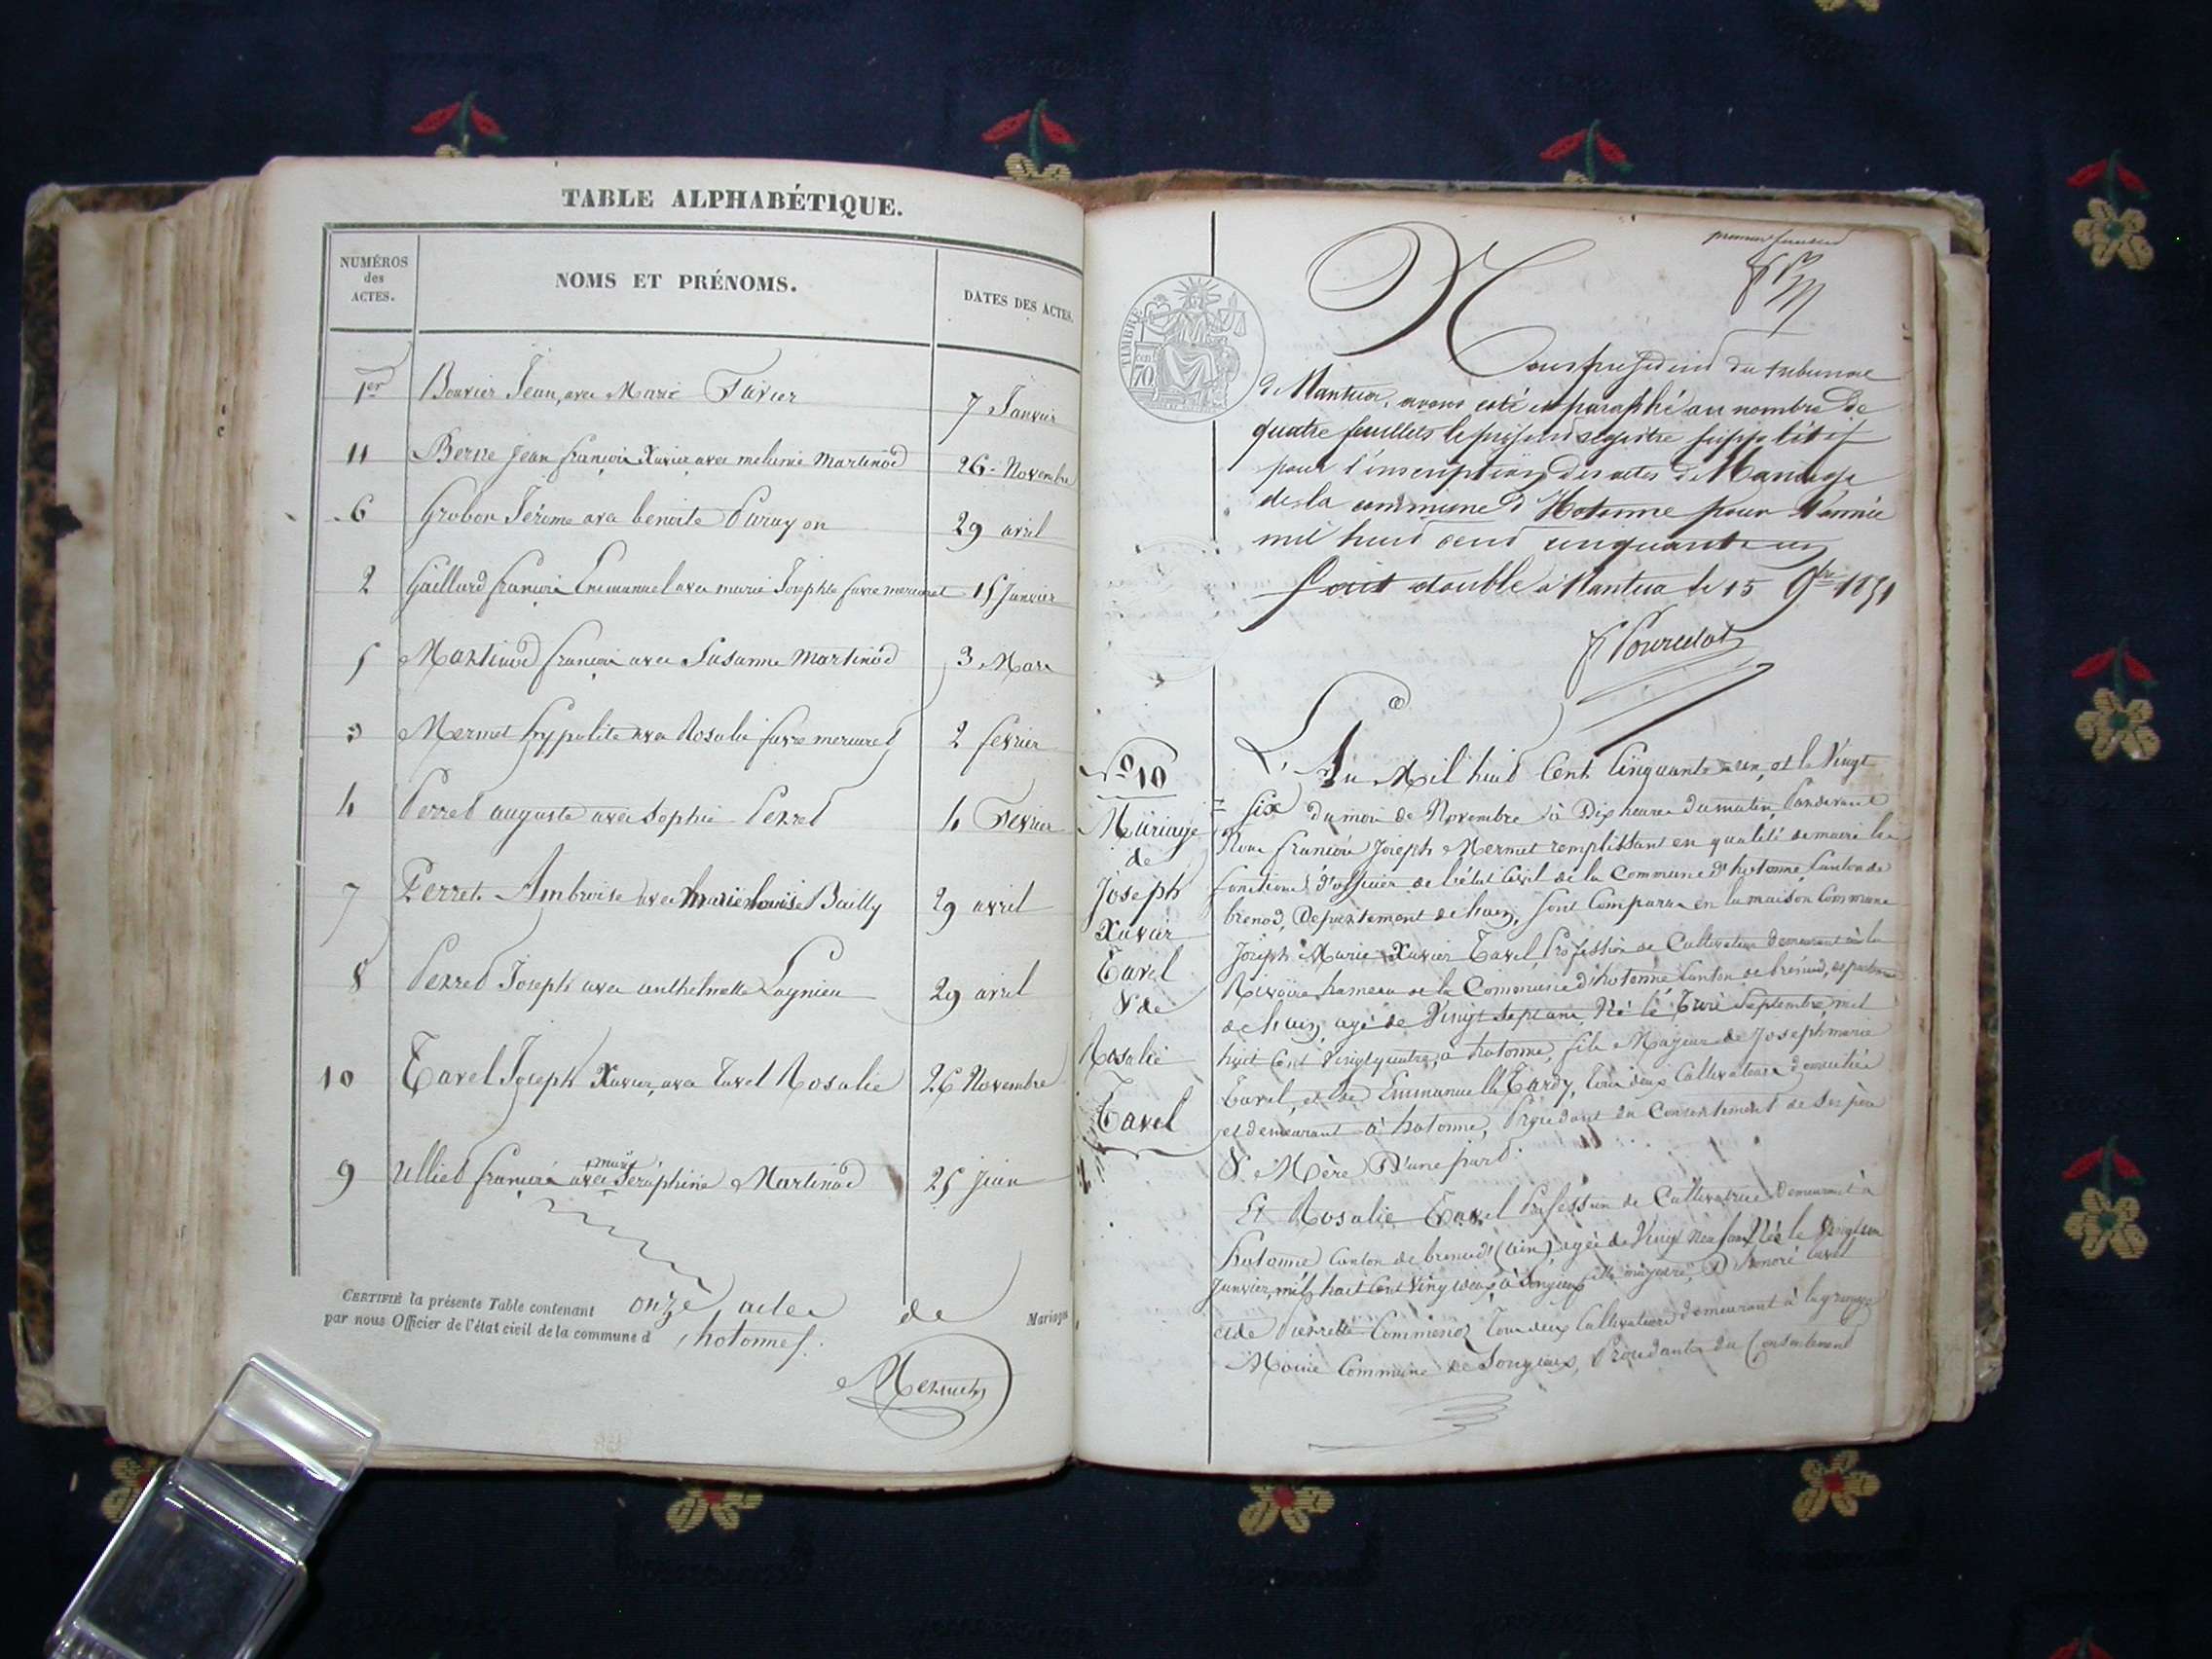 TABLE ALPHABÉTIQUE.
NUMÉROS
des
ACTES.
NOMS ET PRÉNOMS.
DATES DES ACTES.
1er Bouvier Jean, avec Marie Favier 7 Janvier
11 Berne jean françois Xavier avec melanie Martinod 26 Novembre
6 Grobon Jérome avec benoite 29 avril
2 Gaillard françois Emmanuel avec marie Josephte favre mermet 15 Janvier
5 Martinod françois avec Susanne Martinod 3 Mars
3 Mermet hyppolite avec Rosalie favre mermet 2 fevrier
4 Perret auguste avec Sophie Perret 4 Fevrier
7 Perret Ambroise avec marie louise Bailly 29 avril
8 Perret Joseph avec anthelmette Lagnieu 29 avril
10 Tavel Joseph Xavier, avec Tavel Rosalie 26 Novembre
marie
9 Ulliet françois avec Séraphine Martinod 25 juin
CERTIFIÉ la présente Table contenant onze actes de Mariages
par nous Officier de l'état civil de la commune d'hotonnes.
Mermet
premier feuillet
TIMBRE
70
Nous president du tribunal
de Nantua, avons coté et paraphé au nombre de
quatre feuillets le présent registre supplétif
pour l'inscription des actes de Mariage
de la commune d'Hotonne pour l'année
mil huit cent cinquante un
fait double à Nantua le 15 9bre 1851
No 10
Mariage
de
Joseph
Xavier
Tavel
& de
Rosalie
Tavel
L'An Mil huit Cent Cinquante un, et le Vingt
= Six du mois de Novembre à Dix heures du matin, Pardevant
Nous françois Joseph Mermet remplissant en qualité de maire les
fonctions d'officier de l'état Civil de la Commune d'hotonne Canton de
brenod, Departement de l'ain, sont Comparus en la maison Commune
Joseph Marie Xavier Tavel, Profession de Cultivateur demeurant à la
Rivoire hameau de la Commune d'hotonne Canton de brenod, departement
de l'ain, agé de Vingt Sept ans, Né le Septembre mil
huit Cent Vingt quatre, a hotonne, fils Majeur de Joseph marie
Tavel, et de Emmanuelle Tardy, Tous deux Cultivateurs domiciliés
et demeurant à hotonne, Procédant du Consentement de Ses père
& Mère D'une part.
Et Rosalie Tavel Profession de Cultivatrice demeurant à
hotonne Canton de brenod (ain) agée de Vingt Neuf ans Née le Vingt un
Janvier mil huit Cent Vingt deux, à Songieux fille majeure, d'honoré tavel
et de Pierrette Tous deux Cultivateurs demeurant à la grange
Moine Commune de Songieux, Procédant du Consentement